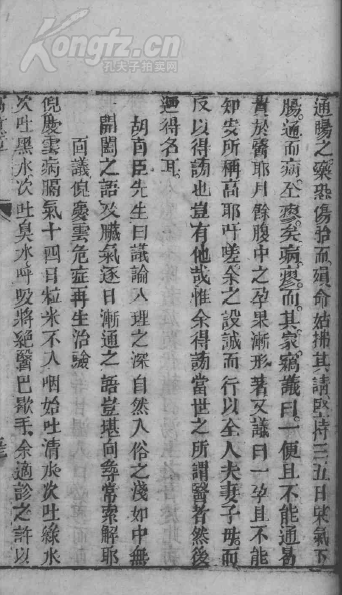 Kongfz.cn
孔夫子拍卖网
通腸之藥恐傷胎而殞命姑拂其請堅持三五日果氣下
腸通而病全瘳矣病瘳而其家竊議曰一便且不能通曷
貴於醫耶月餘腹中之孕果漸形著又議曰一孕且不能
知安所稱高耶吁嗟余之設誠而行以全人夫妻子母而
反以得謗也豈有他哉惟余得謗當世之所謂醫者然後
廼得名耳
胡卣臣先生曰議論入理之深自然入俗之淺如中無
開闔之語及臟氣逐日漸通之語豈堪向尋常索解耶
面議倪慶雲危症再生治驗
倪慶雲病膈氣十四日粒米不入咽始吐清水次吐綠水
次吐黑水次吐臭水呼吸將絕醫已歇手余適診之許以